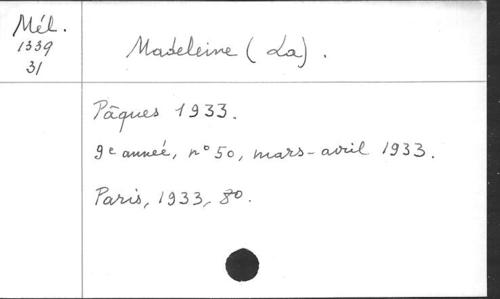 Mél.
1339
31
Madeleine (La).
Pâques 1933.
9e année, n° 50, mars-avril 1933.
Paris, 1933, 8o.